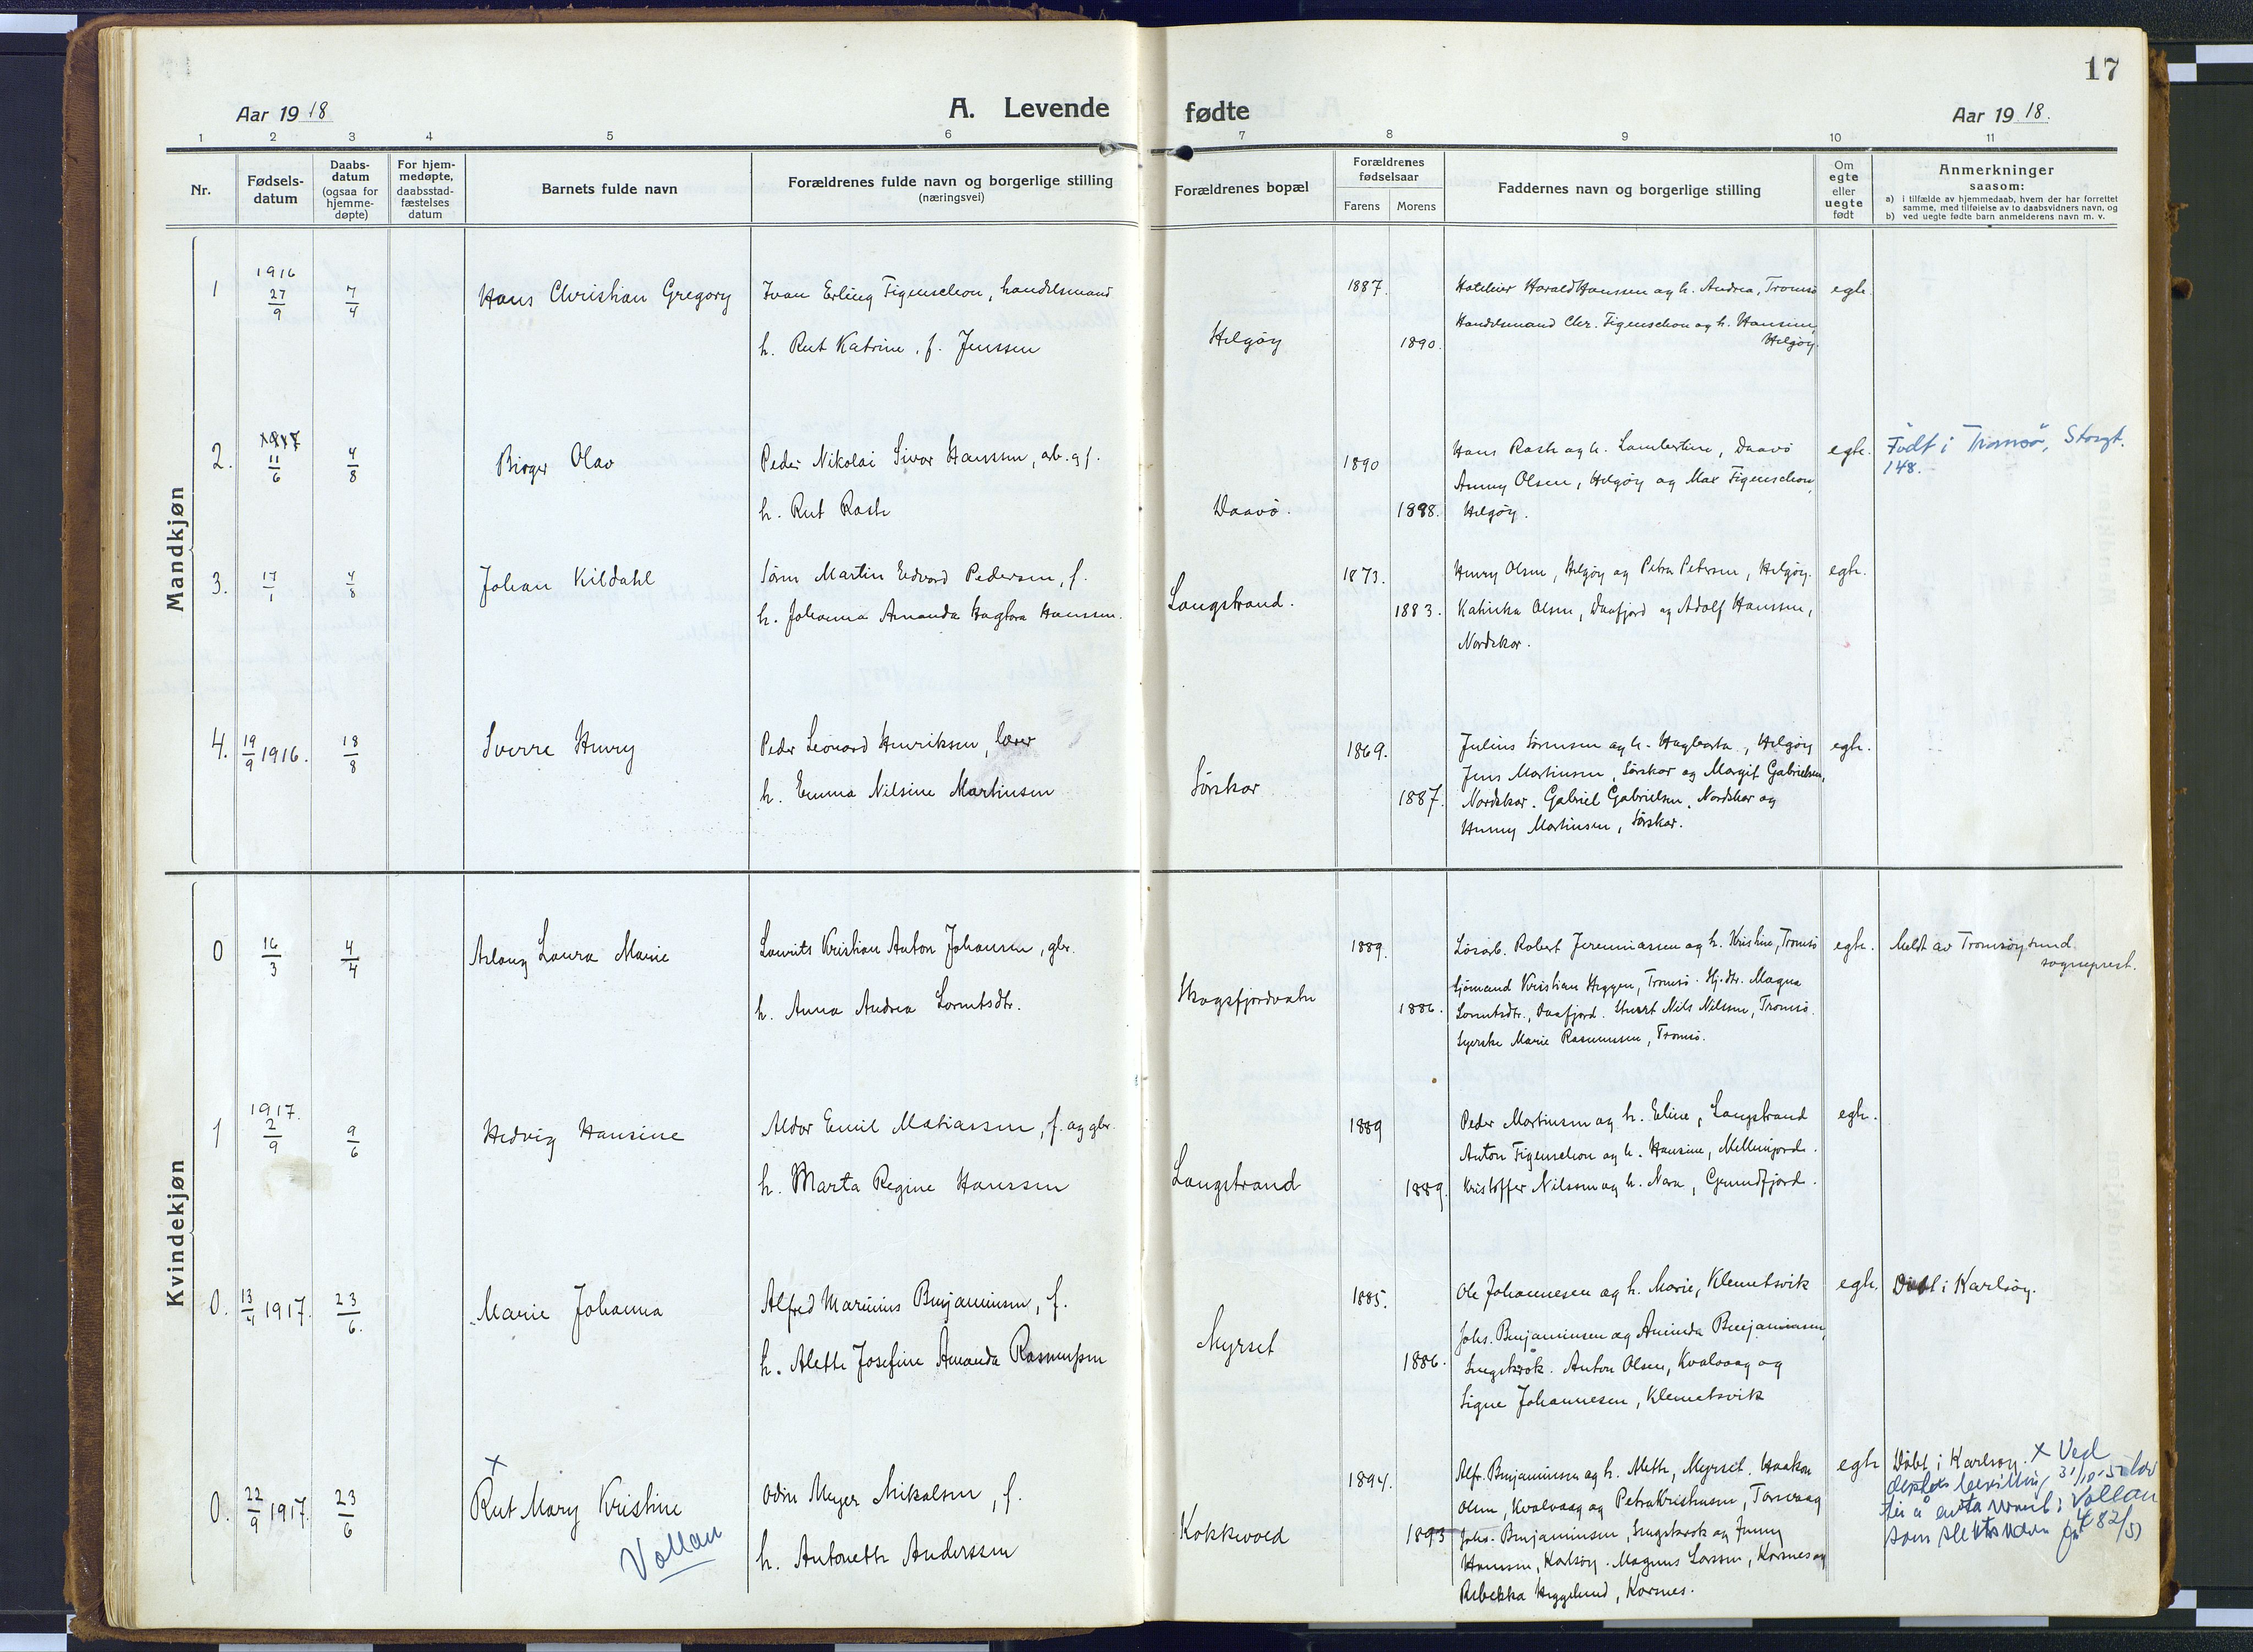 17
Aar 1918
A. Levende
fødte
Aar 1918.
1 2 3 4 5 6 7 8 9 10 11
Nr.
Fødsels-
datum
Daabs-
datum
(ogsaa for
hjemme-
døpte)
For hjem-
medøpte,
daabsstad-
fæstelses
datum
Barnets fulde navn
Forældrenes fulde navn og borgerlige stilling
(næringsvei)
Forældrenes bopæl
Forældrenes
fødselsaar
Farens
Morens
Faddernes navn og borgerlige stilling
Om
egte
eller
uegte
født
Anmerkninger
saasom:
a) i tilfælde av hjemmedaab, hvem der har forrettet
samme, med tilføielse av to daabsvidners navn, og
b) ved uegte fødte barn anmelderens navn m. v.
Mandkjøn
1
1916
27/9
7/4
Hans Christian Gregory
Ivan Erling Figenschou, handelsmand
h. Rut Katrine, f. Jenssen
Helgøy
1887.
1890.
Hotelier Harald Hanssen og h. Andrea, Tromsø
Handelsmand Chr. Figenschou og h. Hansine,
Helgøy.
egte.
2.
1917
11/6
4/8
Birger Olav
Peder Nikolai Sivar Hanssen, arb. og f.
h. Rut Rasch
Daavø.
1890
1898.
Hans Rasch og h. Lambertine, Daavø
Anny Olsen, Helgøy og Max Figenschou,
Helgøy.
egte.
Født i Tromsø, Storgt.
148.
3.
17/1
4/8
Johan Kildahl
Sørn Martin Edvard Pedersen, f.
h. Johanna Amanda Hagbara Hanssen.
Langstrand.
1873.
1883.
Henry Olsen, Helgøy og Petra Petersen, Helgøy.
Katinka Olsen, Daafjord og Adolf Hanssen,
Nordskar.
egte.
4.
19/9 1916.
18/8
Sverre Henry
Peder Leonard Henriksen, lærer
h. Emma Nilsine Martinsen
Sørskar
1869.
1887.
Julius Sørensen og h. Hagbarta, Helgøy
Jens Martinsen, Sørskar og Margit Gabrielsen,
Nordskar. Gabriel Gabrielsen, Nordskar og
Henny Martinsen, Sørskar.
egte.
Kvindekjøn
0
16/3
4/4
Aslaug Laura Marie
Laurits Kristian Anton Johansen, gbr.
h. Anna Andrea Lorentsdtr.
Skogsfjordvatn
1889.
1886.
Løsarb. Robert Jeremiassen og h. Kristine, Tromsø
Sjømand Kristian Heggen, Tromsø. Hj.dtr. Magna
Lorentsdtr., Daafjord. Stuert Nils Nilssen, Tromsø.
Syerske Marie Rasmussen, Tromsø.
egte.
Meldt av Tromsøysund
sogneprest.
1
1917.
2/9
9/6
Hedvig Hansine
Aldor Emil Matiassen, f. og gbr.
h. Marta Regine Hanssen
Langstrand
1889
1889.
Peder Martinsen og h. Eline, Langstrand
Anton Figenschou og h. Hansine, Mellemjord.
Kristoffer Nilssen og h. Nora, Grundfjord.
egte.
0.
13/4 1917.
23/6.
Marie Johanna
Alfred Marinius Benjaminsen, f.
h. Alette Josefine Amanda Rasmussen
Myrset
1885.
1886.
Ole Johannesen og h. Marie, Klemetsvik
Johs. Benjaminsen og Aminda Benjaminsen,
Lengskrok. Anton Olsen, Kvalvaag og
Signe Johannesen, Klemetsvik
egte.
Døbt i Karlsøy.
0.
22/9 1917.
23/6
x
Rut Mary Kristine
Vollan
Odin Meyer Mikalsen, f.
h. Antonette Anderssen
Kokkvold
1894.
1893
Alfr. Benjaminsen og h. Alette, Myrset. Haakon
Olsen, Kvalvaag og Petra Kristiansen, Torsvaag
Johs. Benjaminsen, Lengskrok og Jenny
Hanssen, Karlsøy. Magnus Larssen, Korsnes og
Rebekka Heggelund, Korsnes.
egte
Døbt i Karlsøy. x Ved
bevilling 31/10-51
til å anta navnet: Vollan
som slektsnavn
482/51